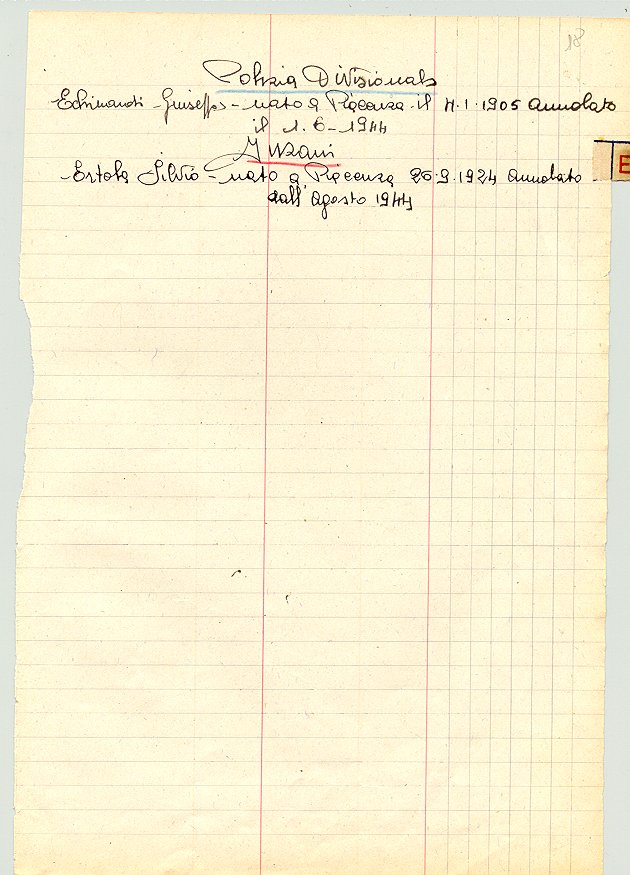 18
Polizia Divisionale
Giuseppe - nato a Piacenza il 4.1.1905 Arruolato
il 1.6-1944
E
Ertola Silvio - nato a Piacenza 26.9.1924 Arruolato
dall'Agosto 1944